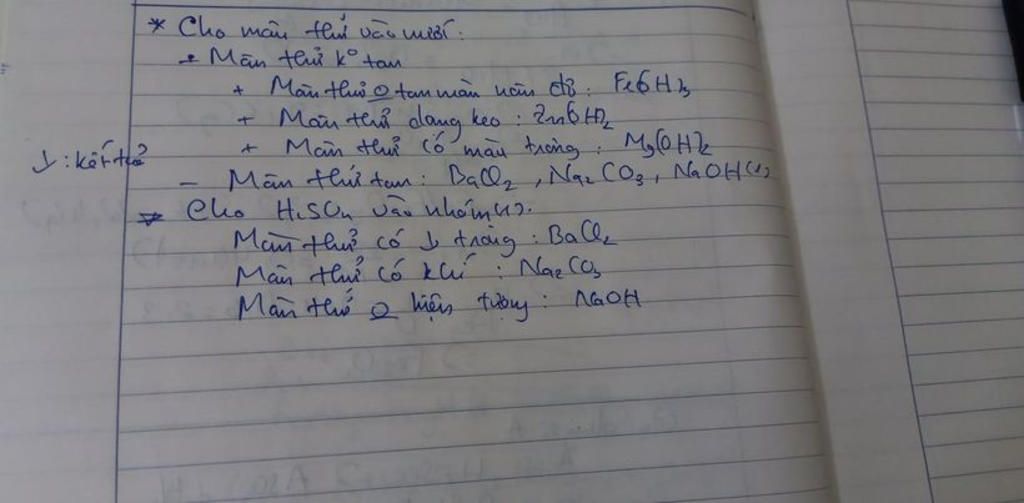 * Cho mẫu thử vào nước:
- Mẫu thử k° tan
+ Mẫu thử O tan màu nâu đỏ: Fe(OH)3
+ Mẫu thử dạng keo: Zn(OH)2
+ Mẫu thử có màu trắng: Mg(OH)2
↓: kết tủa
- Mẫu thử tan: BaCl2, Na2CO3, NaOH (1)
Cho H2SO4 vào nhóm (1).
Mẫu thử có ↓ trắng: BaCl2
Mẫu thử có khí: Na2CO3
Mẫu thử O hiện tượng: NaOH